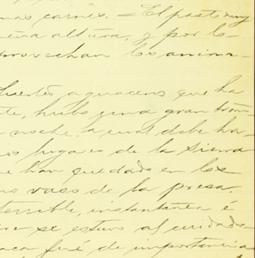 mas carnes. — El pasto muy
altura, y por lo
aprovechan los anima-
aguaceros que ha
te, hubo una gran
noche, la cual debe ha-
lugares de la Sierra
e han quedado en los
vaso de la presa.
terrible, instantánea é
se estuvo al cuidado
fué de importancia